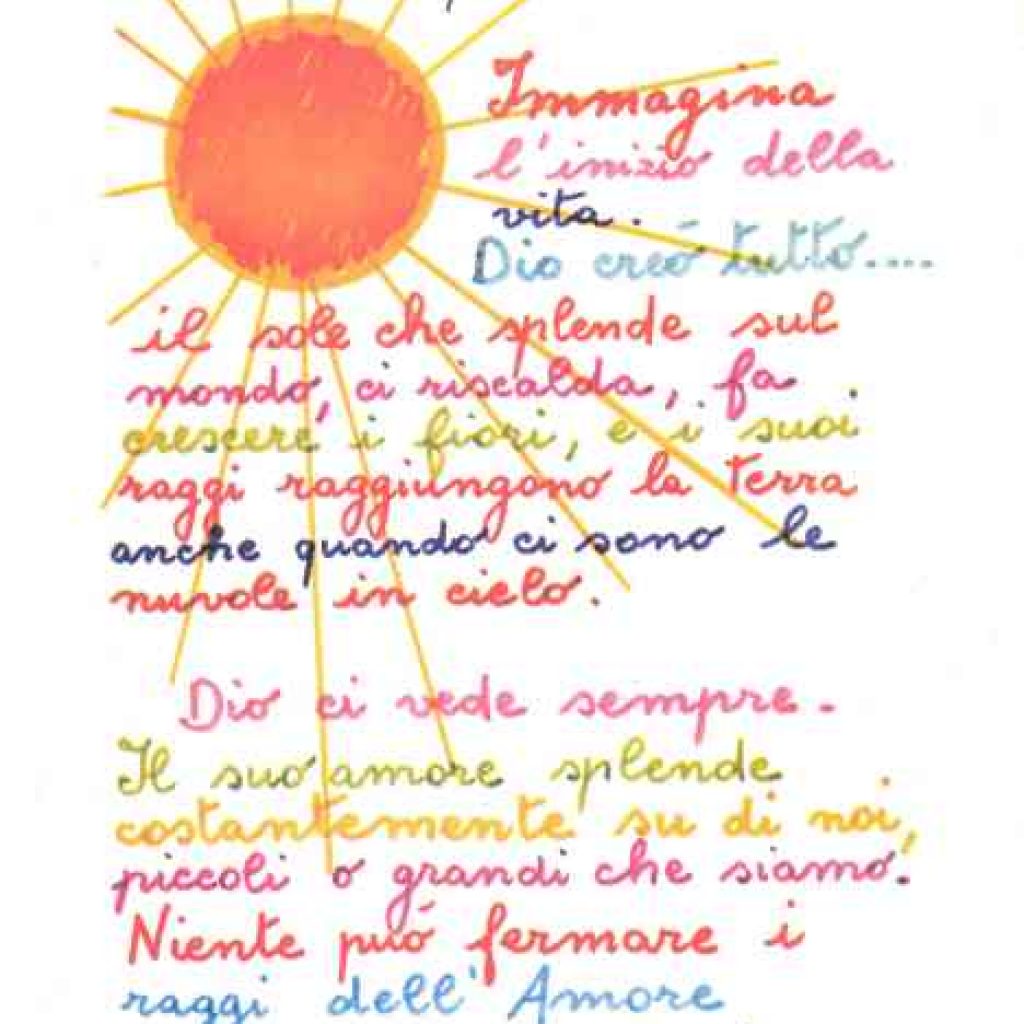 Immagina
l'inizio della
vita.
Dio creó tutto....
il sole che splende sul
mondo, ci riscalda, fa
crescere i fiori, e i suoi
raggi raggiungono la terra
anche quando ci sono le
nuvole in cielo.
Dio ci vede sempre.
Il suo amore splende
costantemente su di noi,
piccoli o grandi che siamo.
Niente puó fermare i
raggi dell'Amore